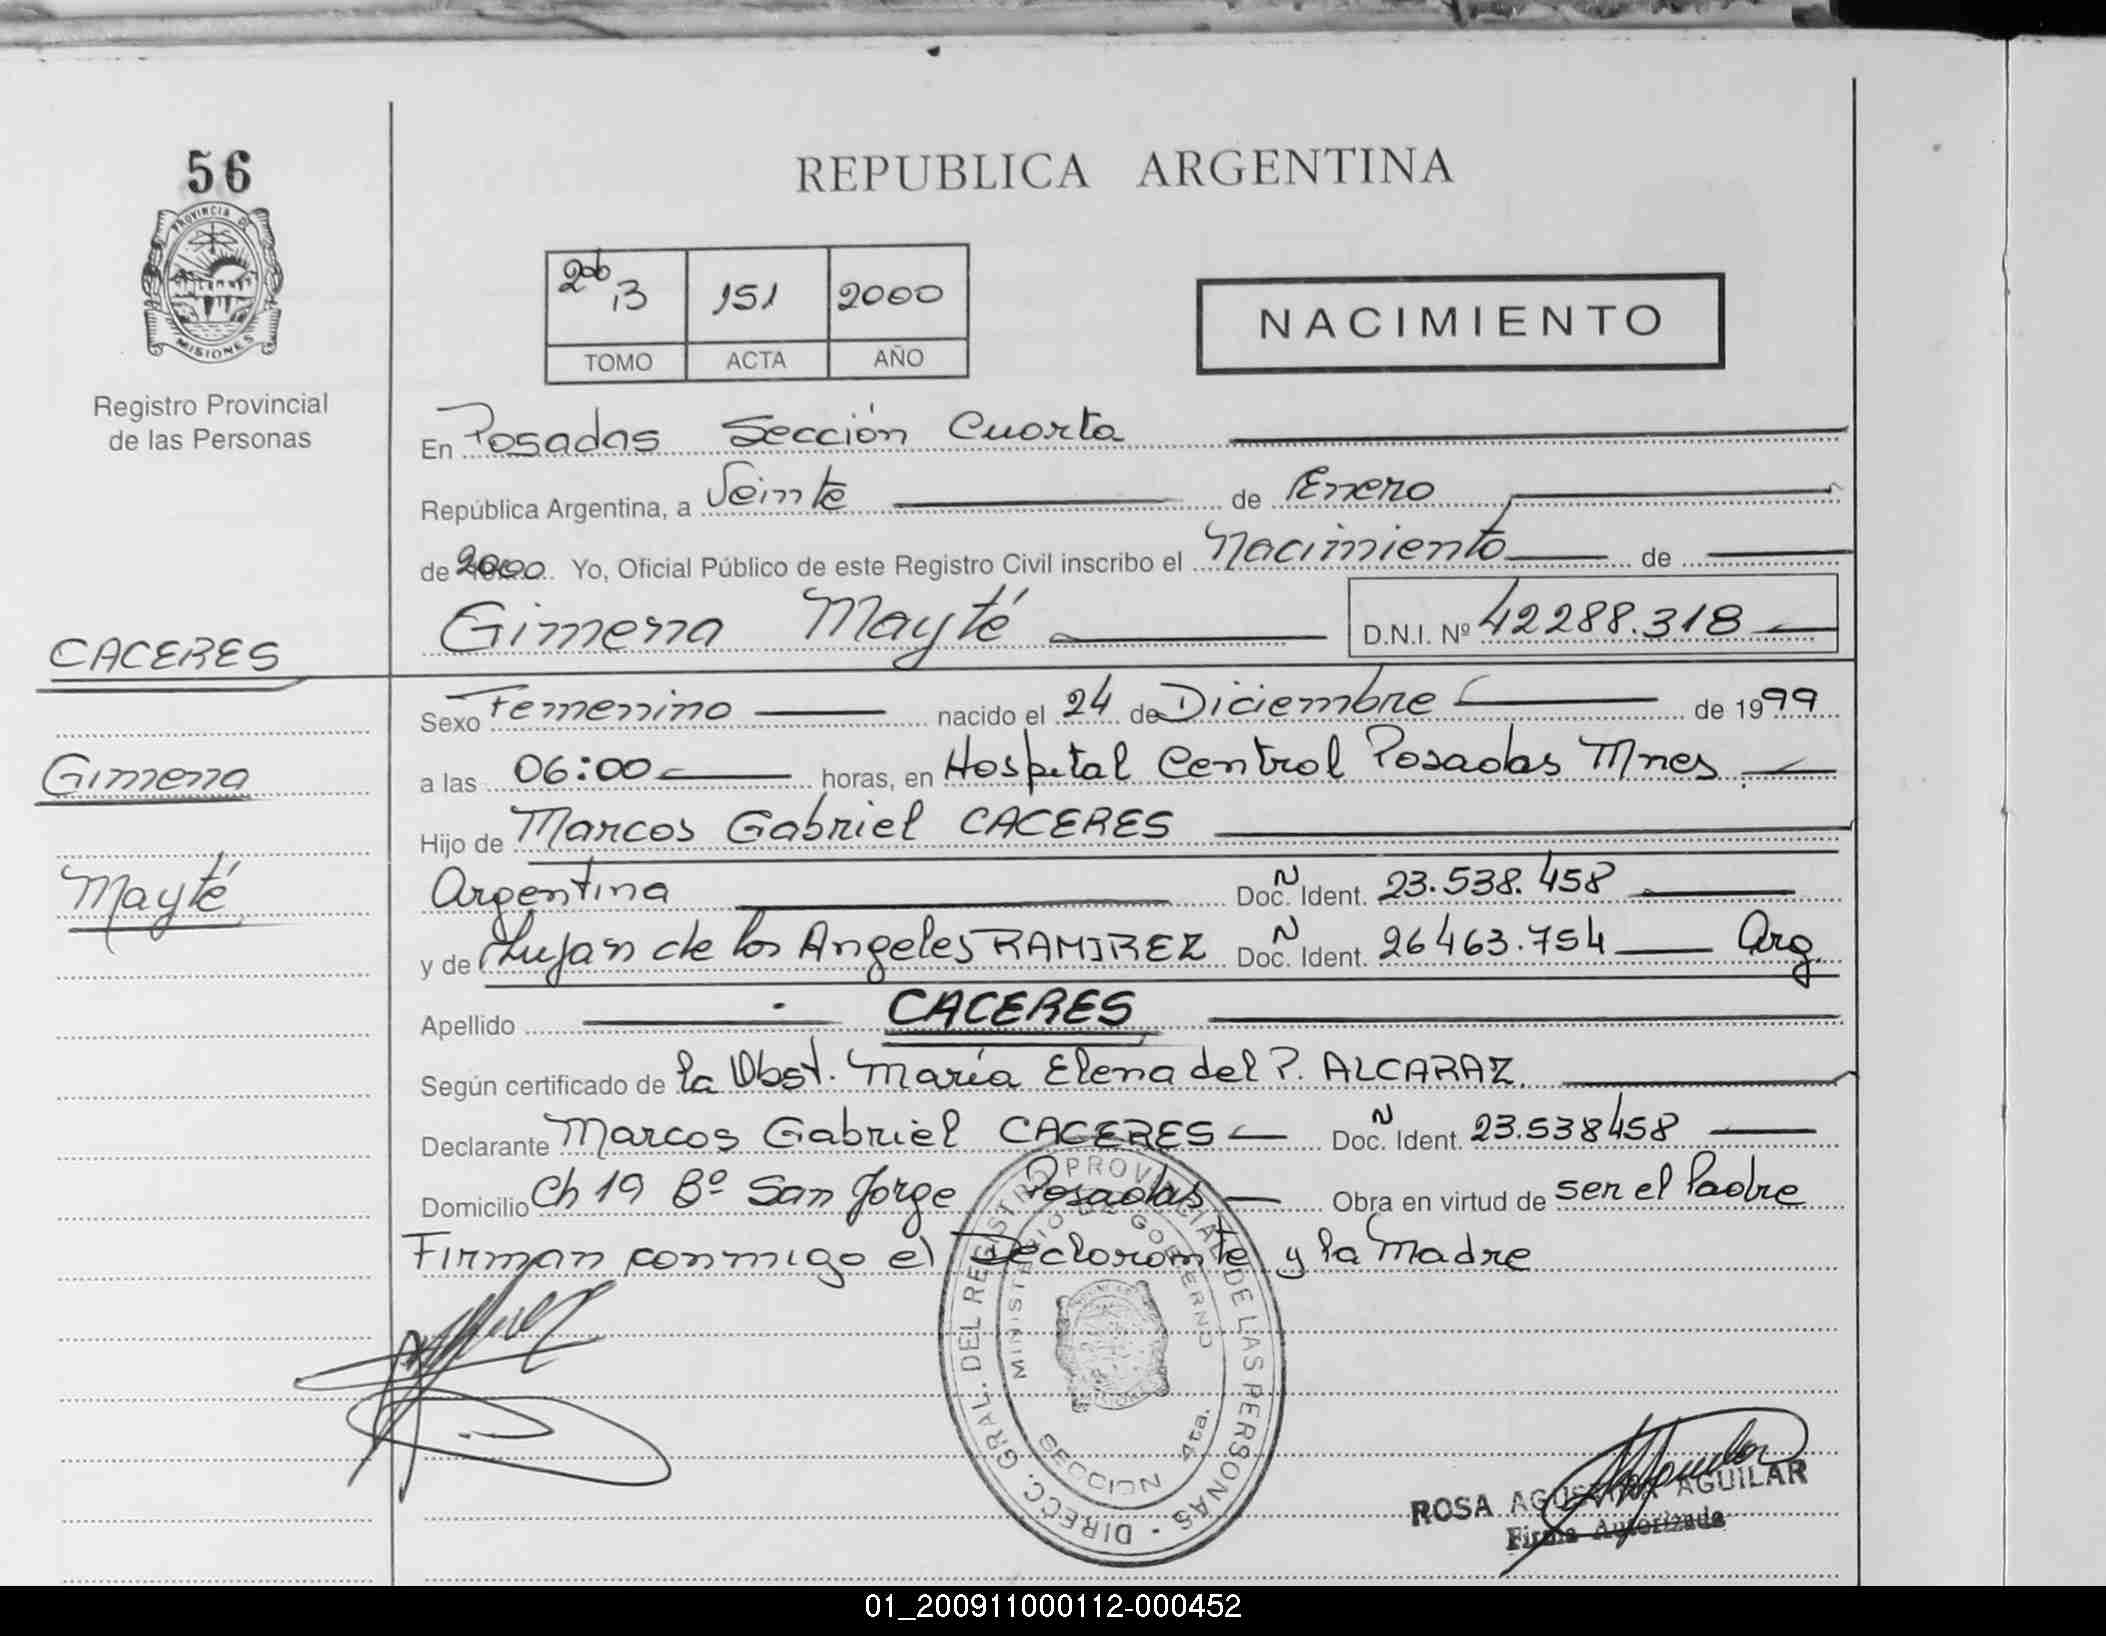 56
PROVINCIA DE
MISIONES
Registro Provincial
de las Personas
REPUBLICA ARGENTINA
13 151 2000
TOMO ACTA AÑO
NACIMIENTO
En Posadas Sección Cuarta
República Argentina, a Veinte de Enero
de 2000 Yo, Oficial Público de este Registro Civil inscribo el Nacimiento de
Gimena Mayté D.N.I. Nº 42288.318
CACERES
Gimena
Mayté
Sexo Femenino nacido el 24 de Diciembre de 1999
a las 06:00 horas, en Hospital Central Posadas Mnes
Hijo de Marcos Gabriel CACERES
Argentina Doc. N Ident. 23.538.458
y de Lujan de los Angeles RAMIREZ Doc. N Ident. 26463.754 Arg.
Apellido CACERES
Según certificado de la Obst. María Elena del P. ALCARAZ
Declarante Marcos Gabriel CACERES Doc. N Ident. 23.538458
Domicilio Ch 19 Bº San Jorge Posadas Obra en virtud de ser el Padre
Firman conmigo el Declarante y la Madre
DIRECC. GRAL. DEL REGISTRO PROVINCIAL DE LAS PERSONAS
MINISTERIO DE GOBIERNO
SECCION 4ta.
ROSA AGUSTINA AGUILAR
Firma Autorizada
01_200911000112-000452